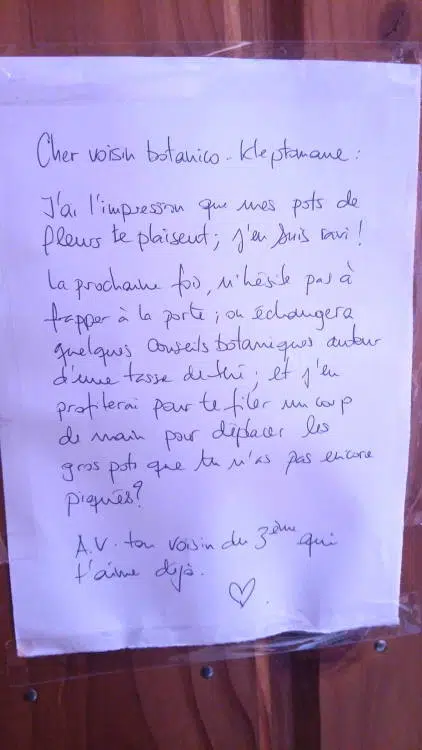 Cher voisin botanico-kleptomane :
J'ai l'impression que mes pots de
fleurs te plaisent ; j'en suis ravi !
La prochaine fois, n'hésite pas à
frapper à la porte ; on échangera
quelques conseils botaniques autour
d'une tasse de thé ; et j'en
profiterai pour te filer un coup
de main pour déplacer les
gros pots que tu n'as pas encore
piqués ?
A.V. ton voisin du 3ème qui
t'aime déjà.
♡.